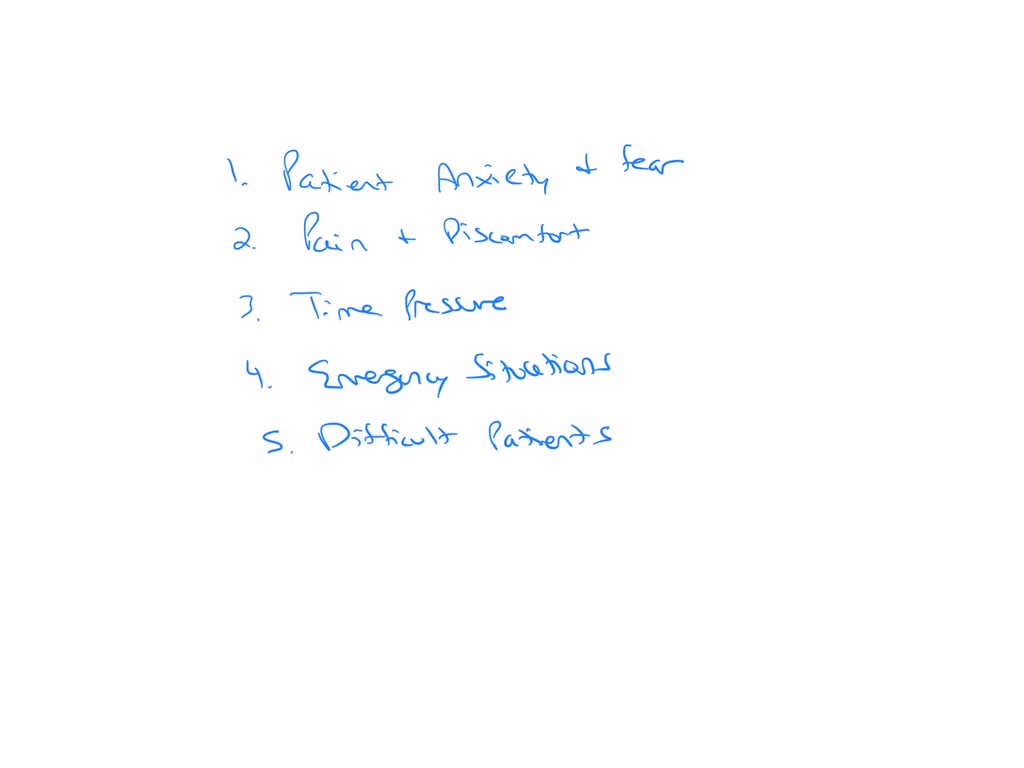 1. Patient Anxiety & fear
2. Pain + Discomfort
3. Time Pressure
4. Emergency Situations
5. Difficult Patients